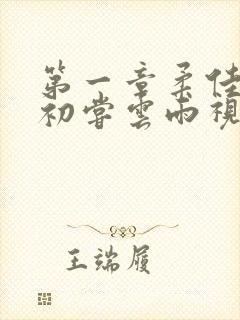 第一章柔佳
初尝雲雨視
王端履